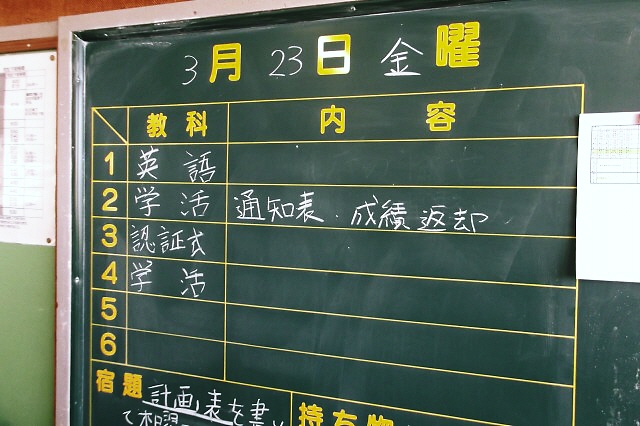 3月23日金曜
教科 内容
1 英語
2 学活 通知表・成績返却
3 認証式
4 学活
5
6
宿題 計画表を書 持ち物